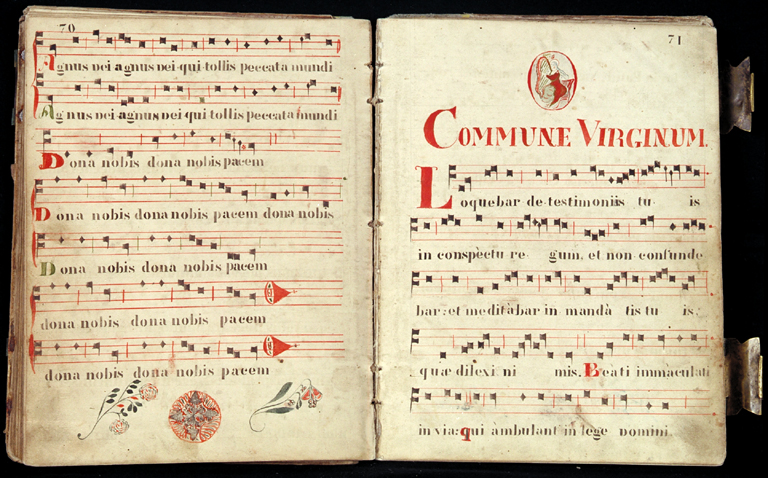 70
Agnus Dei agnus Dei qui tollis peccata mundi
Agnus Dei agnus Dei qui tollis peccata mundi
Dona nobis dona nobis pacem
Dona nobis dona nobis pacem dona nobis
Dona nobis dona nobis pacem
dona nobis dona nobis pacem
dona nobis dona nobis pacem
71
COMMUNE VIRGINUM.
Loquebar de testimoniis tu is
in conspèctu re gum, et non confunde
bar: et meditàbar in mandà tis tu is,
quæ dilexi ni mis. Beati immaculati
in via: qui àmbulant in lege Domini.